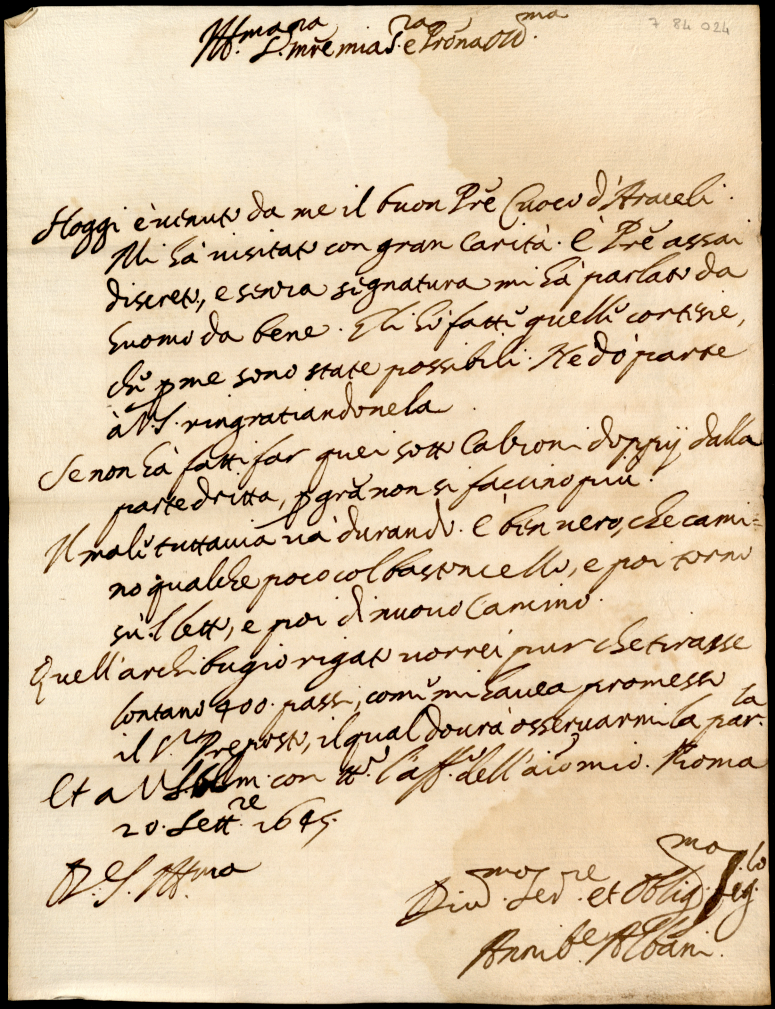 7 84 024
Ill.ma S.ra mre mia S.ra e Prona Oss.ma
Hoggi è uenuto da me il buon Pre Cuoco d'Araceli.
Mi hà uisitato con gran Carità. È Pre assai
discreto, e senza signatura mi hà parlato da
huomo da bene. Gli hò fatti quelle cortesie,
che p me sono state possibili. Ne dò parte
à V.S. ringratiandonela.
Se non hà fatti far quei sotto Calzoni doppij dalla
parte dritta, p gra non si faccino più.
Il male tuttauia uà durando. È ben uero, che cami=
no qualche poco col bastoncello, e poi torno
sù 'l letto, e poi di nuouo Camino.
Quell'archibugio rigato uorrei pur che tirasse
lontano 400. passi, come mi hauea promesso
il S.r Preposto, il qual dourà osseruarmi la par.la
Et a V.S. Ill.m con tt.o l'aff.o dell'aio mio. Roma
20. Sett.re 1645.
D. V.S. Ill.ma
Diu.mo Ser.re et Oblig.mo
Annib.e Albani.